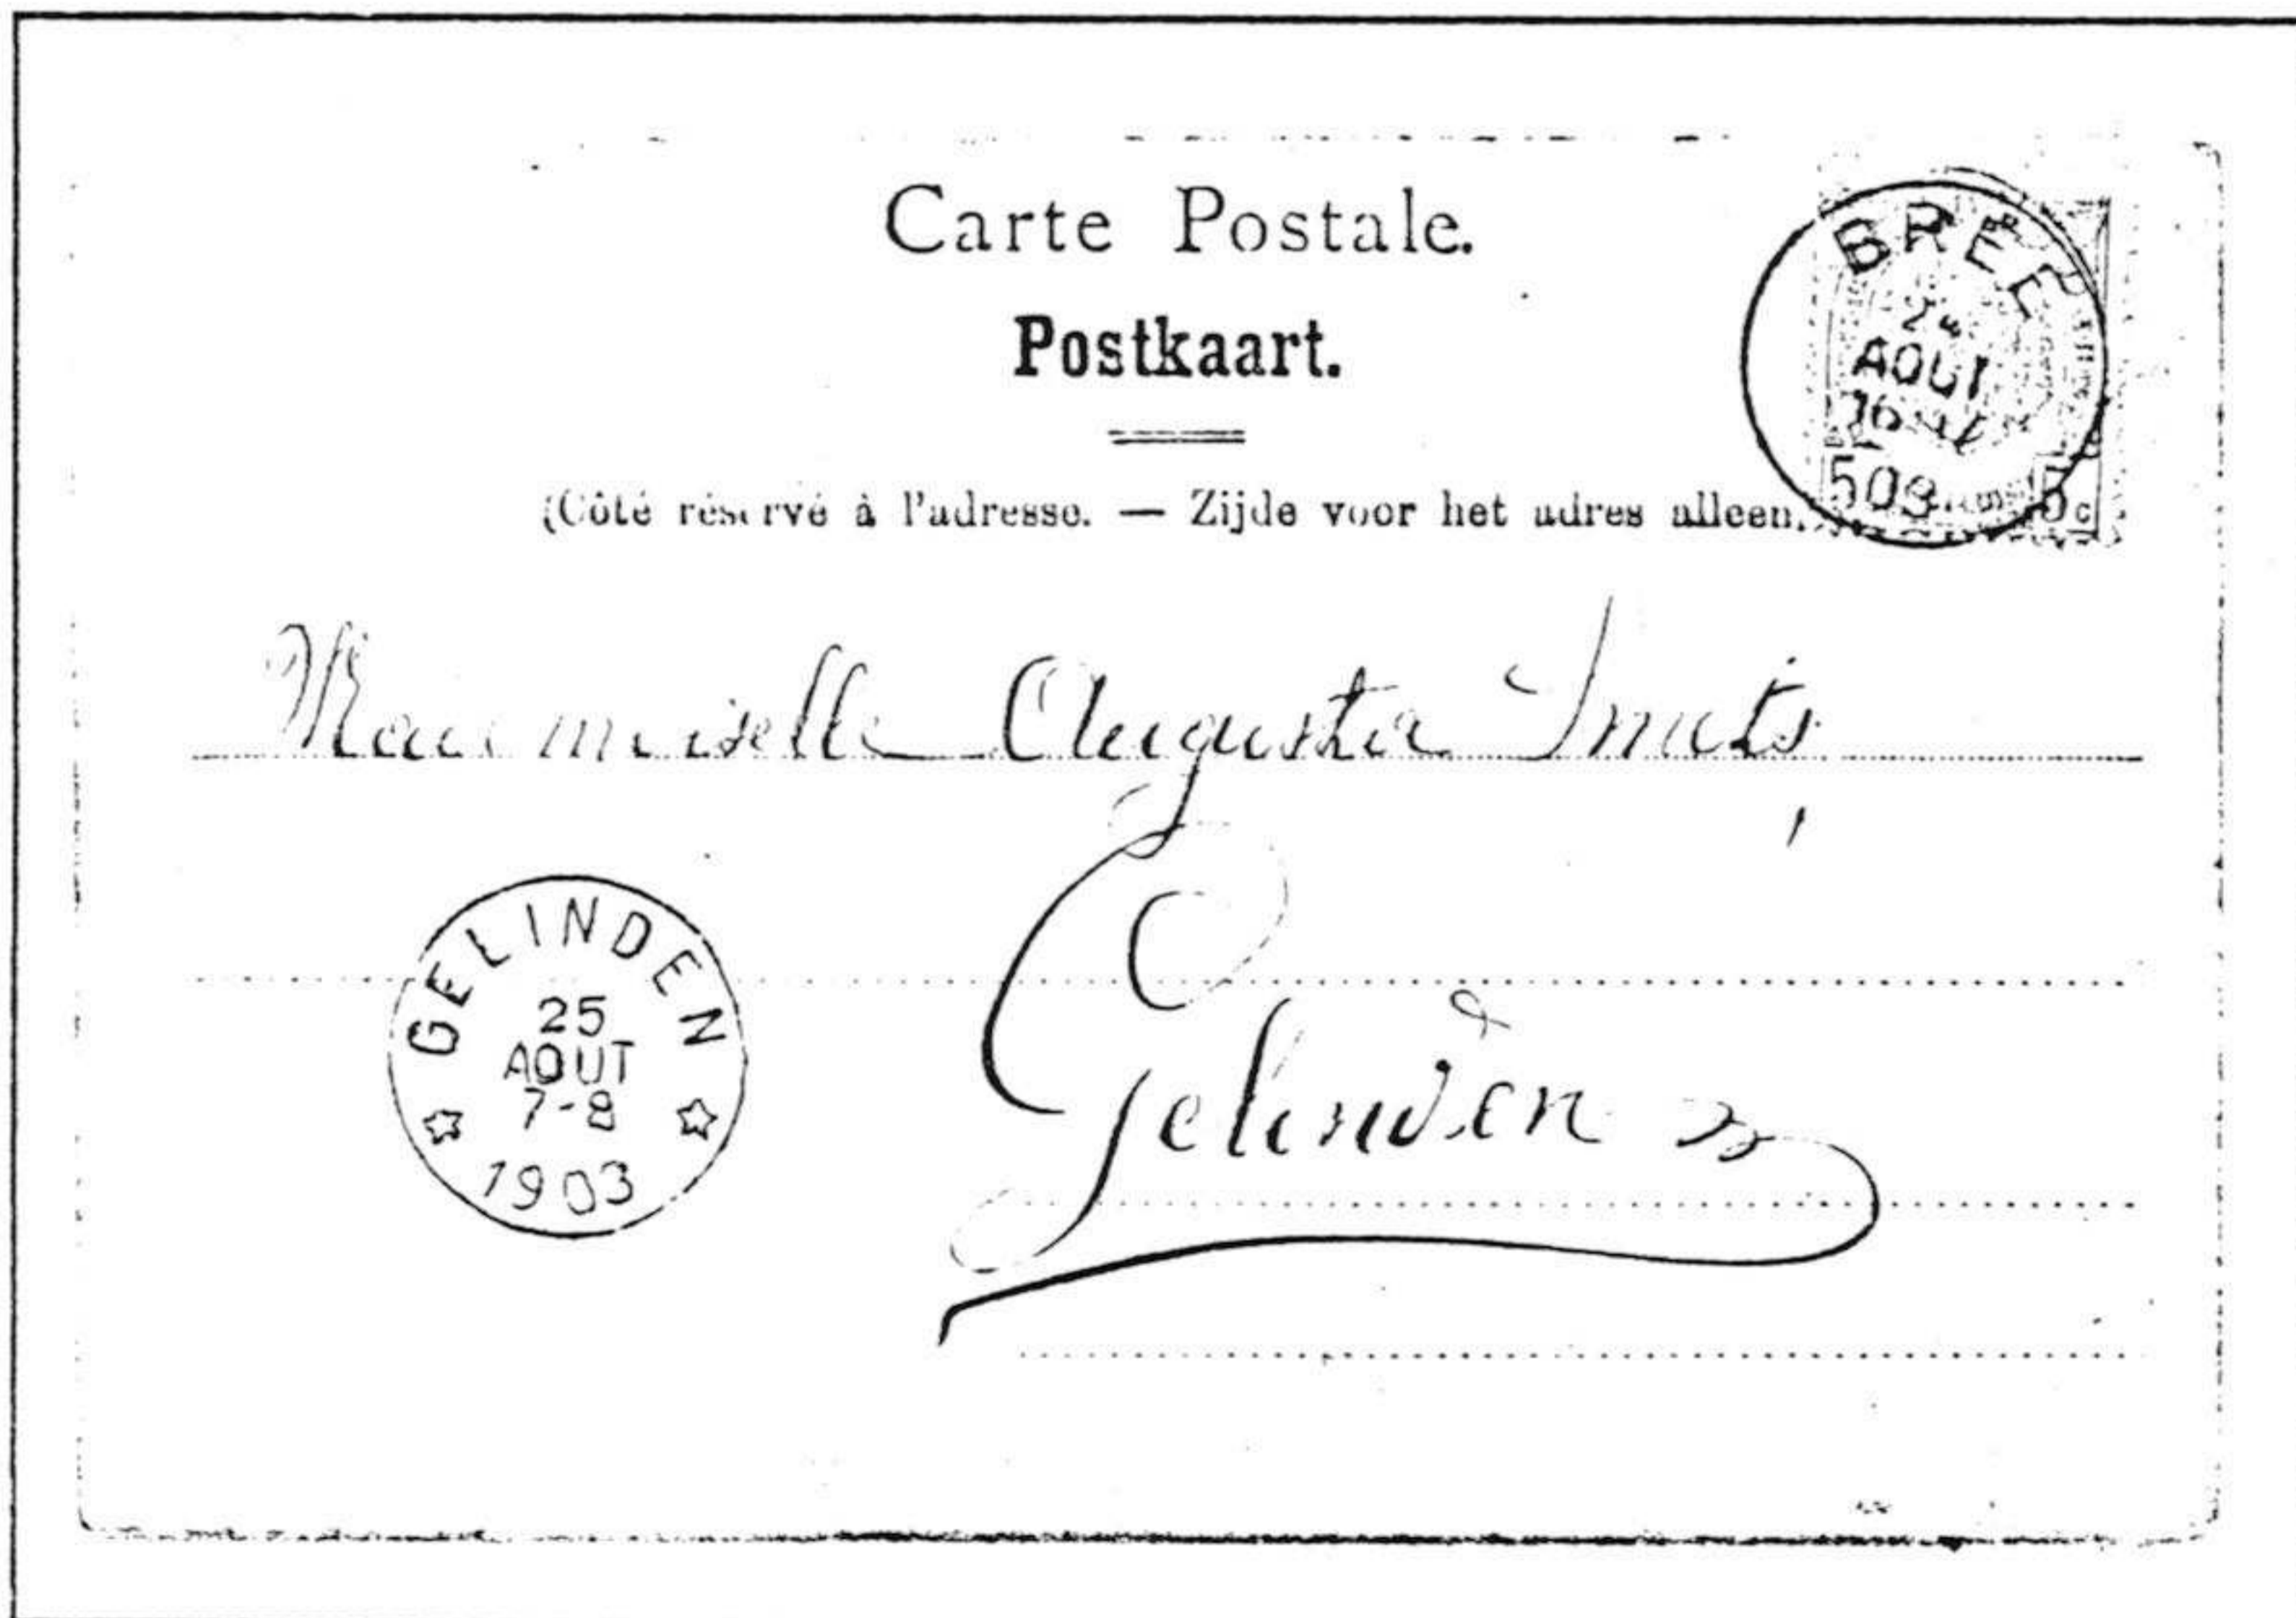 Carte Postale.
Postkaart.
(Côté réservé à l'adresse. — Zijde voor het adres alleen.
BREE
AOUT
5c
Mademoiselle Augusta Smets,
GELINDEN
25
AOUT
7-8
1903
Gelinden